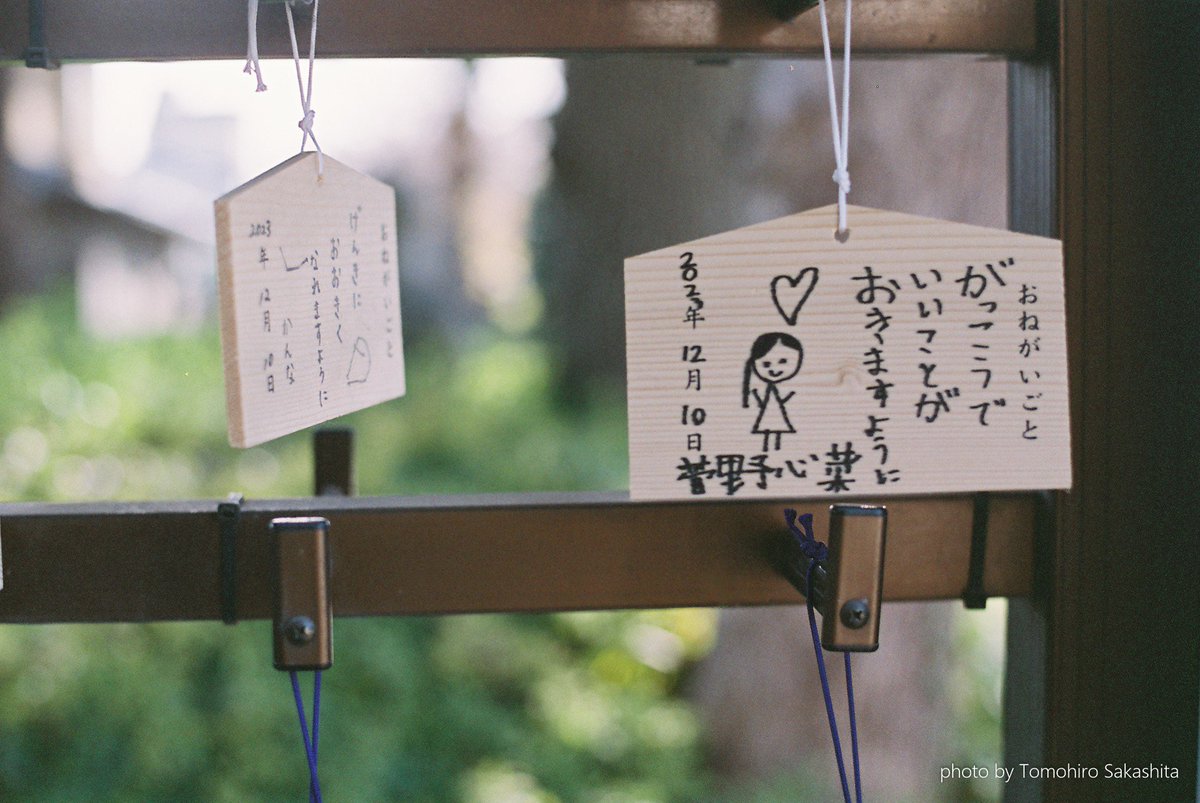 おねがいごと
がっこうで
いいことが
おきますように
2023年 12月 10日
菅野心菜
おねがいごと
げんきに
おおきく
なれますように
かんな
2023年 12月 10日
photo by Tomohiro Sakashita